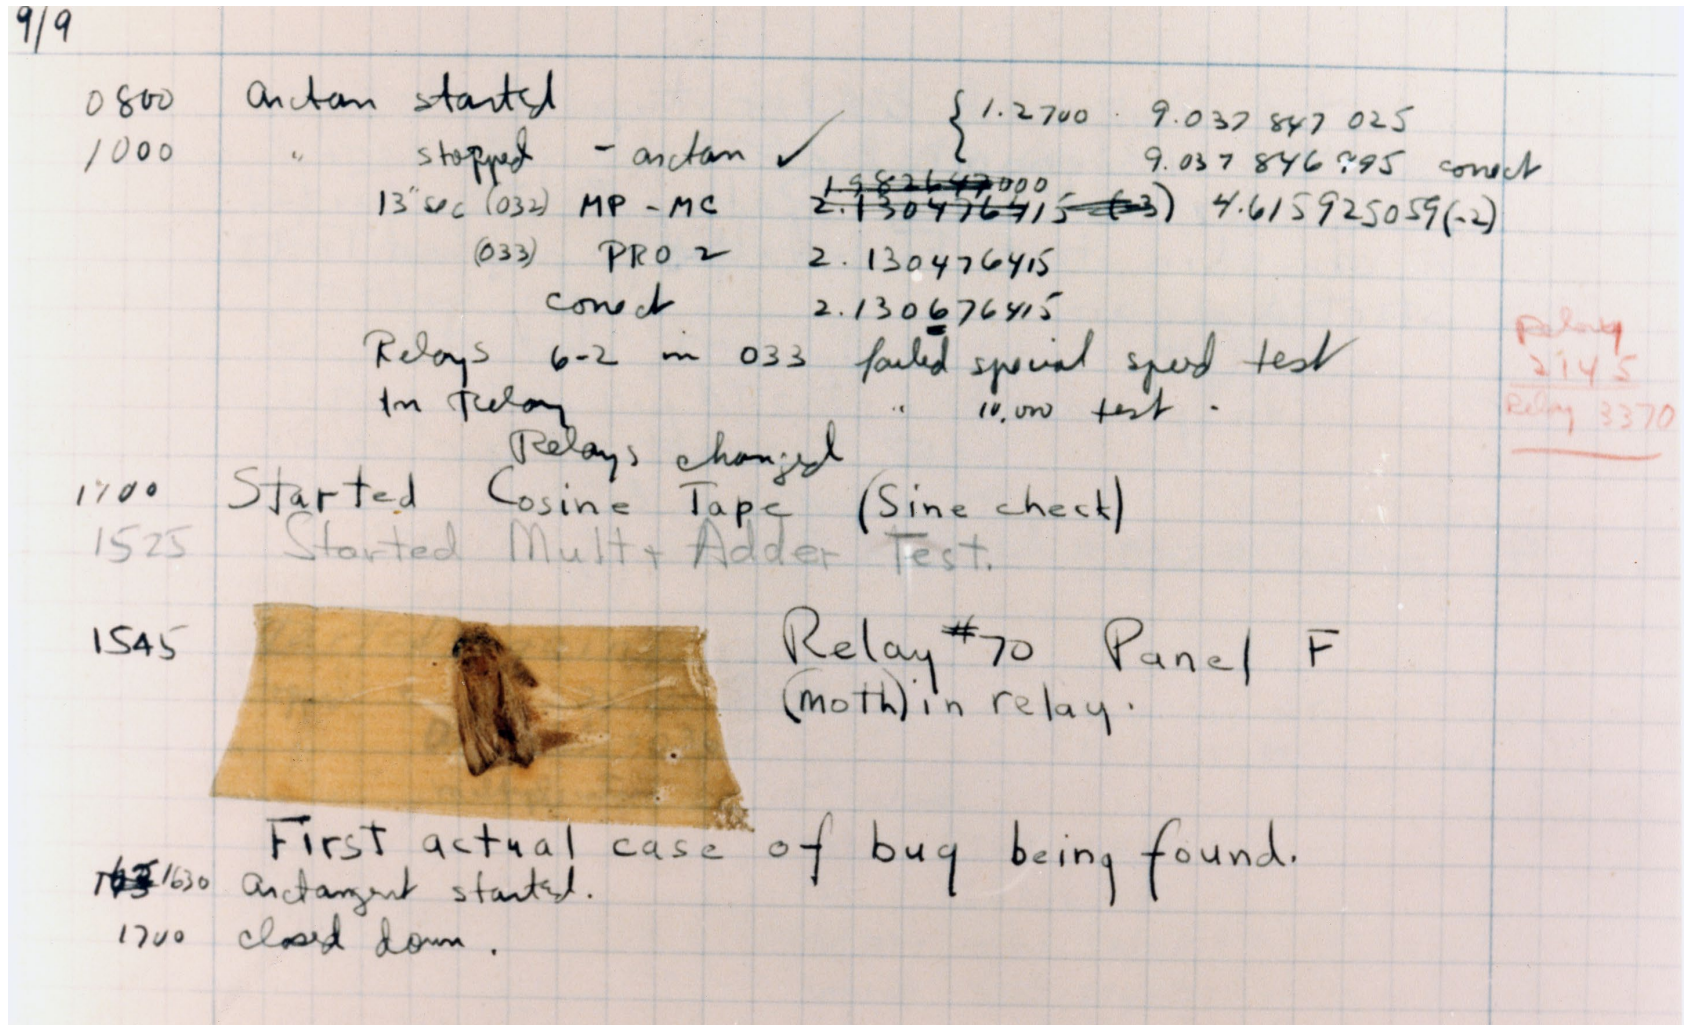 9/9
0800 arctan started
1000 " stopped - arctan ✓ { 1.2700 9.037 847 025
9.037 846 795 correct
13"sec (032) MP - MC 2.130476415 (-3) 4.615925059(-2)
(033) PRO 2 2.130476415
correct 2.130676415
Relays 6-2 in 033 failed special speed test
In Relay " 10,000 test.
Relays changed
Relay
2145
Relay 3370
1700 Started Cosine Tape (Sine check)
1525 Started Mult + Adder Test.
1545 Relay #70 Panel F
(moth) in relay.
First actual case of bug being found.
1630 arctangent started.
1700 closed down.